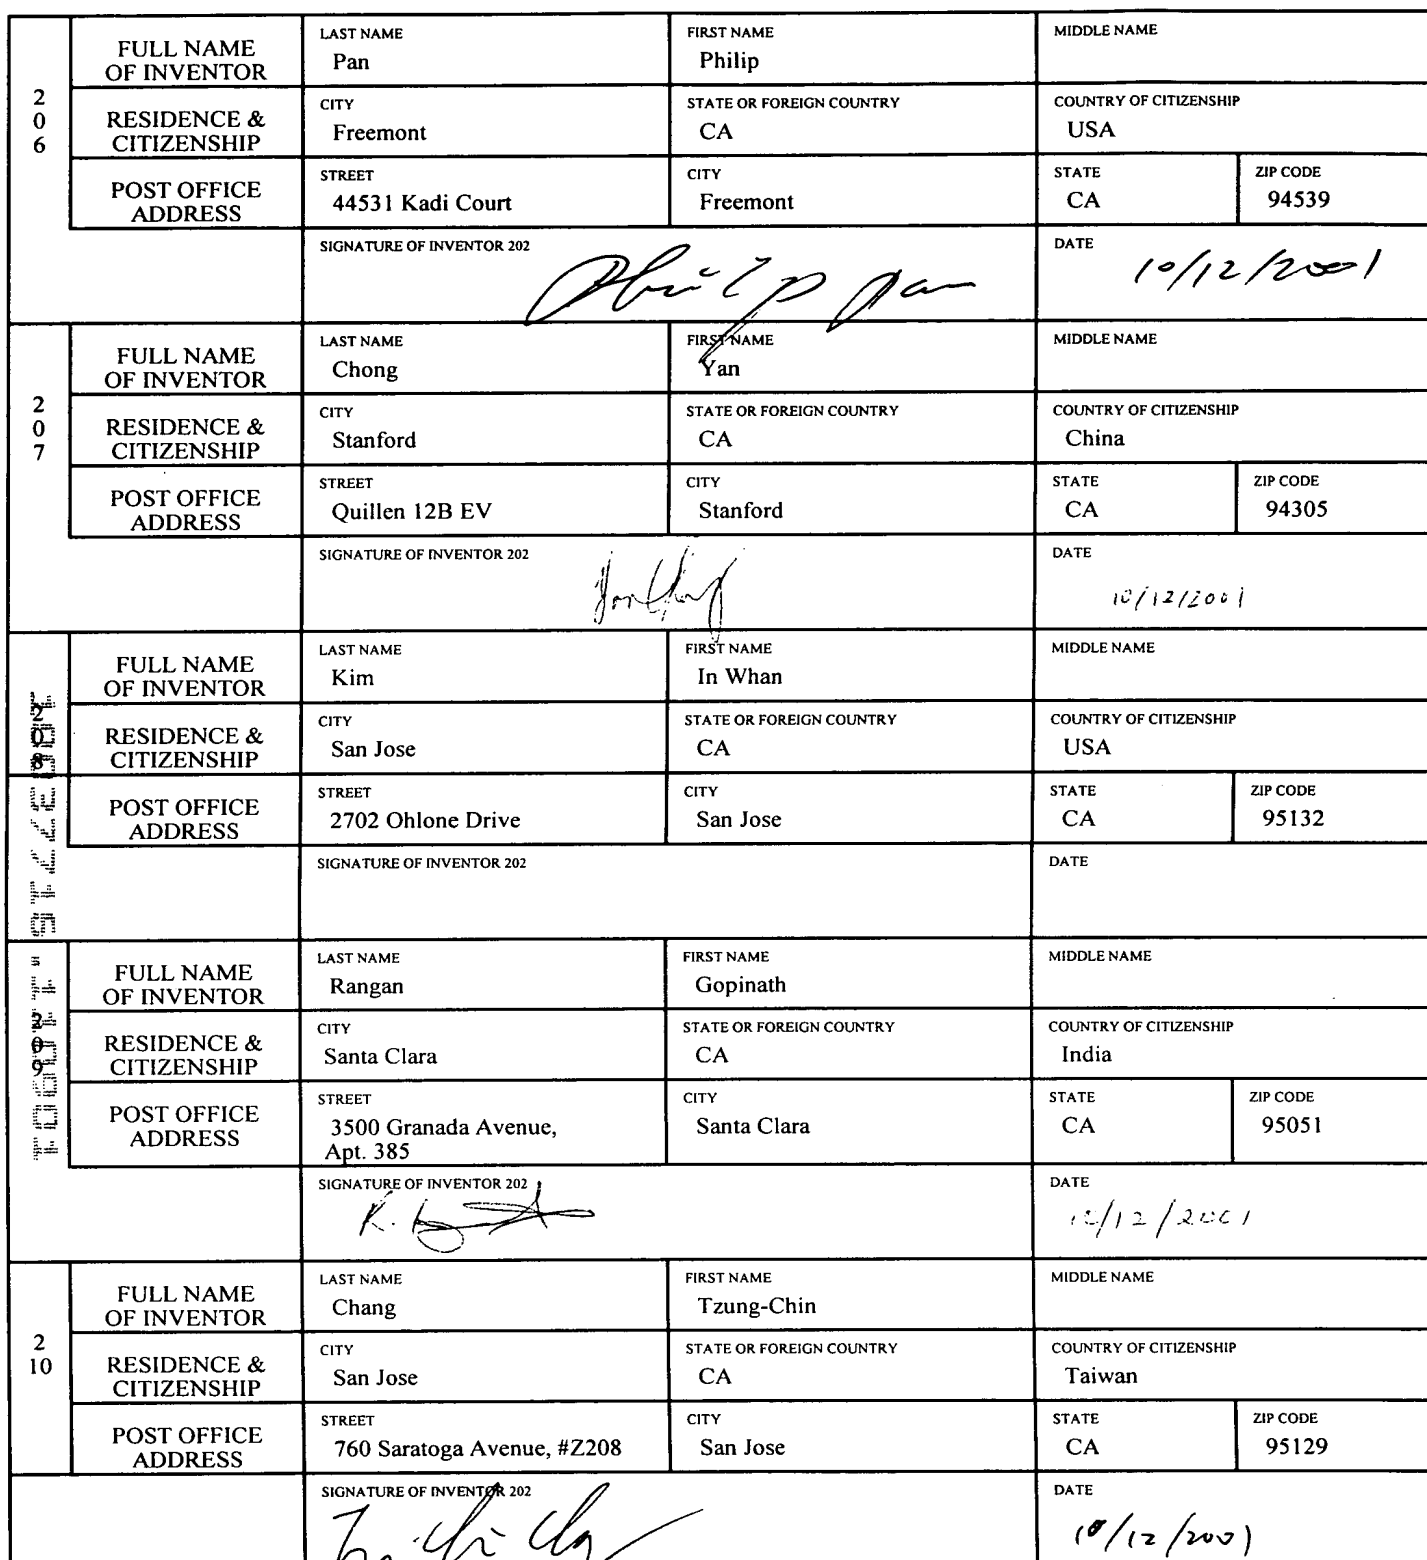 206
FULL NAME OF INVENTOR
LAST NAME
Pan
FIRST NAME
Philip
MIDDLE NAME
RESIDENCE & CITIZENSHIP
CITY
Freemont
STATE OR FOREIGN COUNTRY
CA
COUNTRY OF CITIZENSHIP
USA
POST OFFICE ADDRESS
STREET
44531 Kadi Court
CITY
Freemont
STATE
CA
ZIP CODE
94539
SIGNATURE OF INVENTOR 202
Philip Pan
DATE
10/12/2001
207
FULL NAME OF INVENTOR
LAST NAME
Chong
FIRST NAME
Yan
MIDDLE NAME
RESIDENCE & CITIZENSHIP
CITY
Stanford
STATE OR FOREIGN COUNTRY
CA
COUNTRY OF CITIZENSHIP
China
POST OFFICE ADDRESS
STREET
Quillen 12B EV
CITY
Stanford
STATE
CA
ZIP CODE
94305
SIGNATURE OF INVENTOR 202
DATE
10/12/2001
208
FULL NAME OF INVENTOR
LAST NAME
Kim
FIRST NAME
In Whan
MIDDLE NAME
RESIDENCE & CITIZENSHIP
CITY
San Jose
STATE OR FOREIGN COUNTRY
CA
COUNTRY OF CITIZENSHIP
USA
POST OFFICE ADDRESS
STREET
2702 Ohlone Drive
CITY
San Jose
STATE
CA
ZIP CODE
95132
SIGNATURE OF INVENTOR 202
DATE
209
FULL NAME OF INVENTOR
LAST NAME
Rangan
FIRST NAME
Gopinath
MIDDLE NAME
RESIDENCE & CITIZENSHIP
CITY
Santa Clara
STATE OR FOREIGN COUNTRY
CA
COUNTRY OF CITIZENSHIP
India
POST OFFICE ADDRESS
STREET
3500 Granada Avenue,
Apt. 385
CITY
Santa Clara
STATE
CA
ZIP CODE
95051
SIGNATURE OF INVENTOR 202
DATE
10/12/2001
210
FULL NAME OF INVENTOR
LAST NAME
Chang
FIRST NAME
Tzung-Chin
MIDDLE NAME
RESIDENCE & CITIZENSHIP
CITY
San Jose
STATE OR FOREIGN COUNTRY
CA
COUNTRY OF CITIZENSHIP
Taiwan
POST OFFICE ADDRESS
STREET
760 Saratoga Avenue, #Z208
CITY
San Jose
STATE
CA
ZIP CODE
95129
SIGNATURE OF INVENTOR 202
DATE
10/12/2001